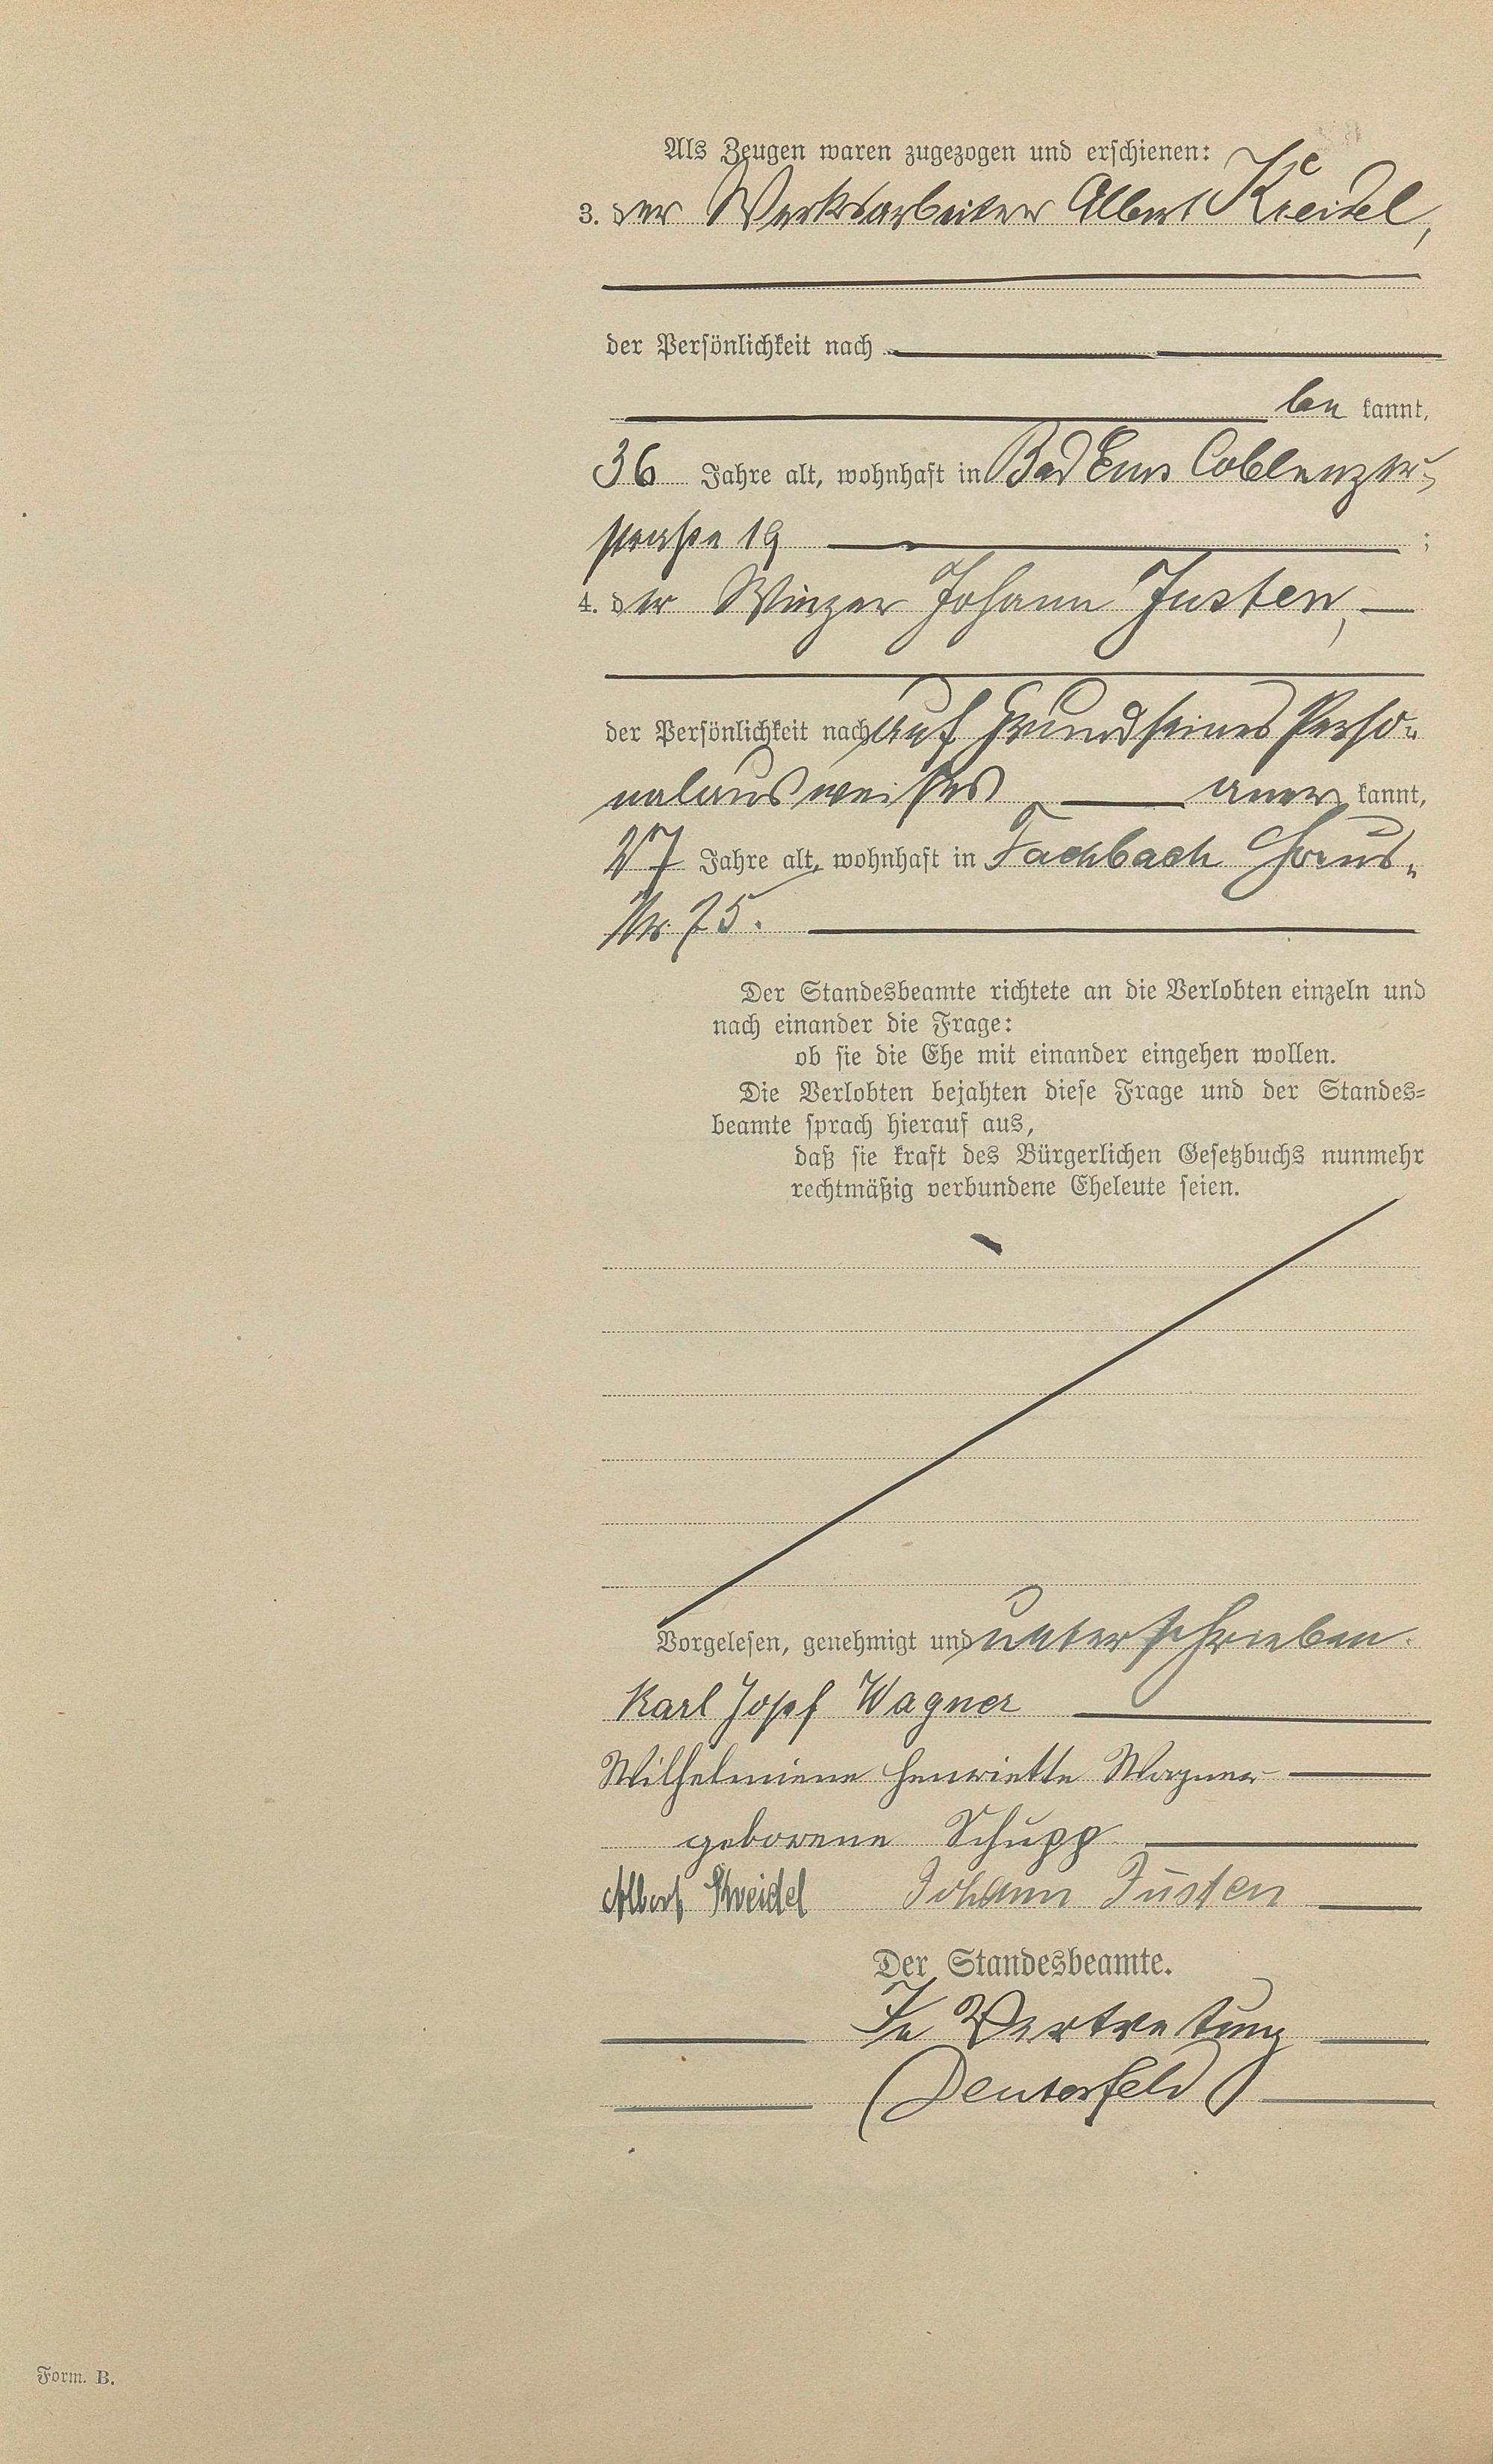 Als Zeugen waren zugezogen und erschienen:
3. der Werksarbeiter Albert Kreidel,
der Persönlichkeit nach
be kannt,
36 Jahre alt, wohnhaft in Bad Ems Coblenzer-
straße 19 ;
4. der Winzer Johann Justen,
der Persönlichkeit nach auf Grund seines Perso-
nalausweises aner kannt,
27 Jahre alt, wohnhaft in Fachbach Haus-
Nr. 75.
Der Standesbeamte richtete an die Verlobten einzeln und
nach einander die Frage:
ob sie die Ehe mit einander eingehen wollen.
Die Verlobten bejahten diese Frage und der Standes-
beamte sprach hierauf aus,
daß sie kraft des Bürgerlichen Gesetzbuchs nunmehr
rechtmäßig verbundene Eheleute seien.
Vorgelesen, genehmigt und unterschrieben.
Karl Josef Wagner
Wilhelmiene Henriette Wagner
geborene Schupp
Albert Kreidel Johann Justen
Der Standesbeamte.
In Vertretung
Deusterfeld
Form. B.